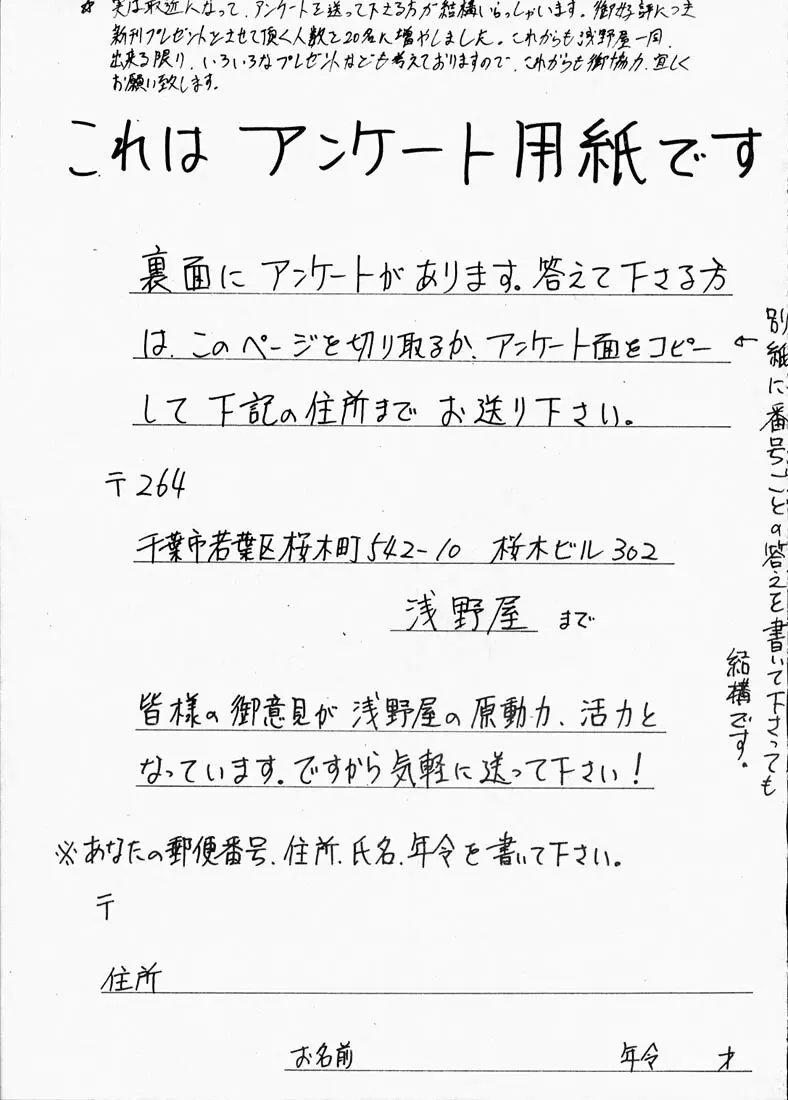 ☆ 実は最近になって、アンケートを送って下さる方が結構いらっしゃいます。御好評につき
新刊プレゼントをさせて頂く人数を20名に増やしました。これからも浅野屋一同、
出来る限り、いろいろなプレゼントなども考えておりますので、これからも御協力、宜しく
お願い致します。
これは アンケート用紙です
裏面に アンケートがあります。答えて下さる方
は、このページを切り取るか、アンケート面をコピー
して 下記の住所まで お送り下さい。
←別紙に番号ごとの答えを書いて下さっても
結構です。
〒264
千葉市若葉区桜木町542-10 桜木ビル302
浅野屋 まで
皆様の御意見が 浅野屋の原動力、活力と
なっています。ですから気軽に送って下さい!
※あなたの郵便番号、住所、氏名、年令を書いて下さい。
〒
住所
お名前 年令 才